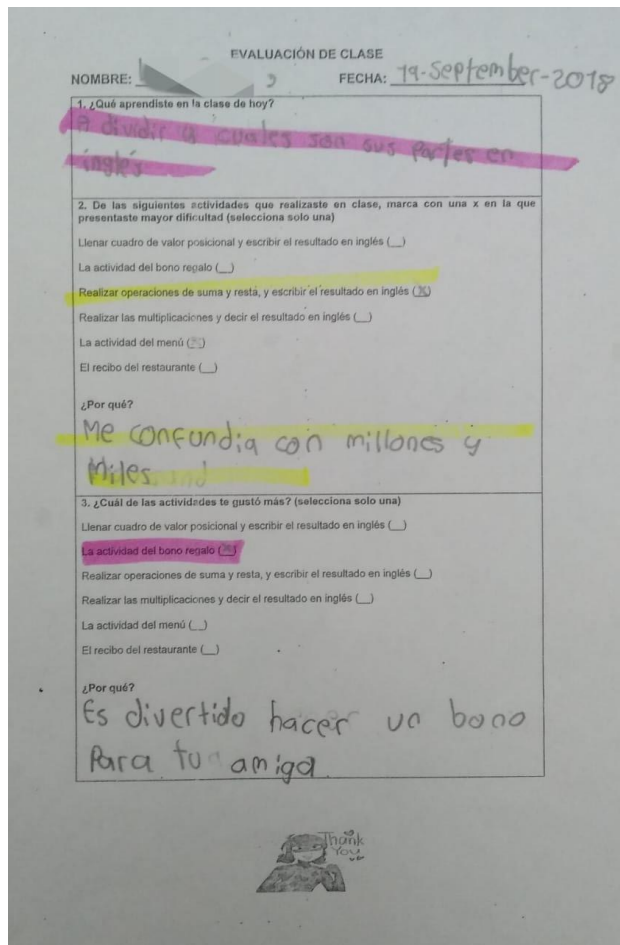 EVALUACIÓN DE CLASE
NOMBRE: FECHA: 19-September-2018
1. ¿Qué aprendiste en la clase de hoy?
A dividir y cuales son sus partes en
inglés
2. De las siguientes actividades que realizaste en clase, marca con una x en la que
presentaste mayor dificultad (selecciona solo una)
Llenar cuadro de valor posicional y escribir el resultado en inglés (__)
La actividad del bono regalo (__)
Realizar operaciones de suma y resta, y escribir el resultado en inglés (X)
Realizar las multiplicaciones y decir el resultado en inglés (__)
La actividad del menú (__)
El recibo del restaurante (__)
¿Por qué?
Me confundia con millones y
Miles
3. ¿Cuál de las actividades te gustó más? (selecciona solo una)
Llenar cuadro de valor posicional y escribir el resultado en inglés (__)
La actividad del bono regalo (X)
Realizar operaciones de suma y resta, y escribir el resultado en inglés (__)
Realizar las multiplicaciones y decir el resultado en inglés (__)
La actividad del menú (__)
El recibo del restaurante (__)
¿Por qué?
Es divertido hacer un bono
Para tu amiga
Thank
You